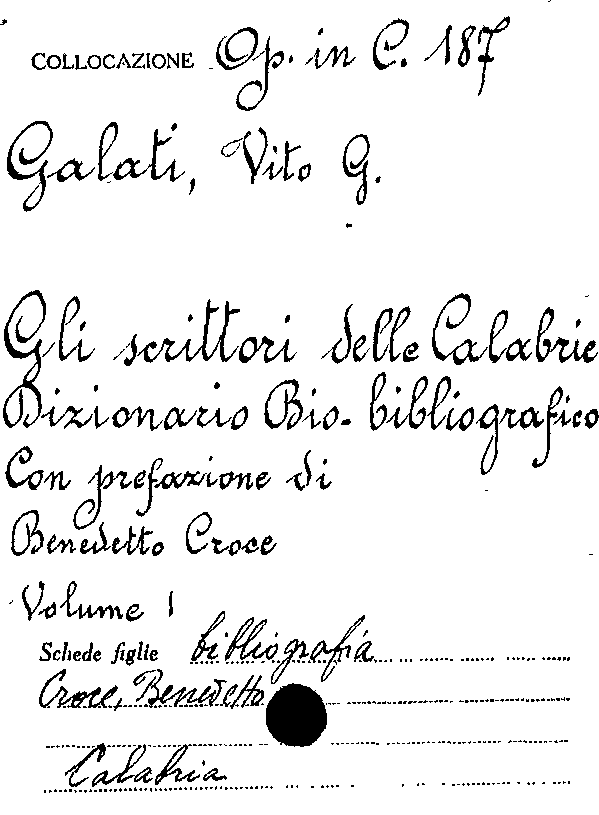 COLLOCAZIONE Op. in C. 187
Galati, Vito G.
Gli scrittori delle Calabrie
Dizionario Bio-bibliografico
Con prefazione di
Benedetto Croce
Volume 1
Schede figlie bibliografia
Croce, Benedetto
Calabria